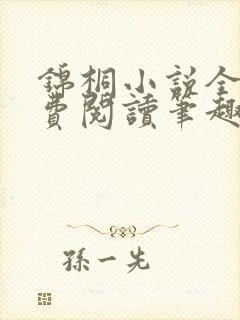 錦桐小説全
費閱讀筆趣
孫一先